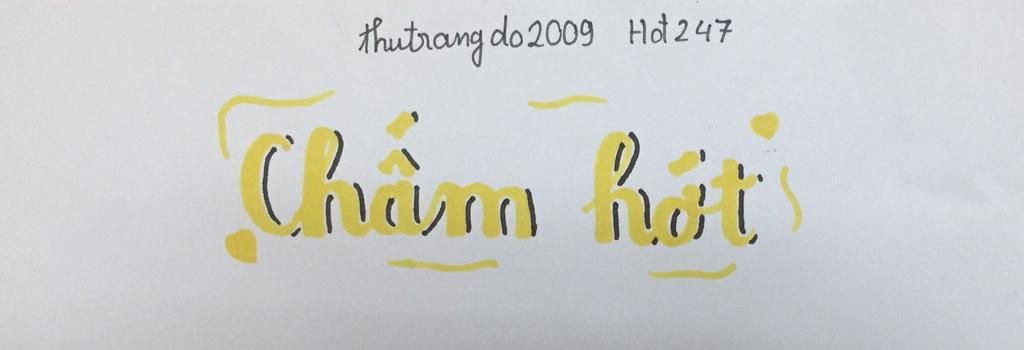 thutrangdo2009 Hot247
Chấm hớt